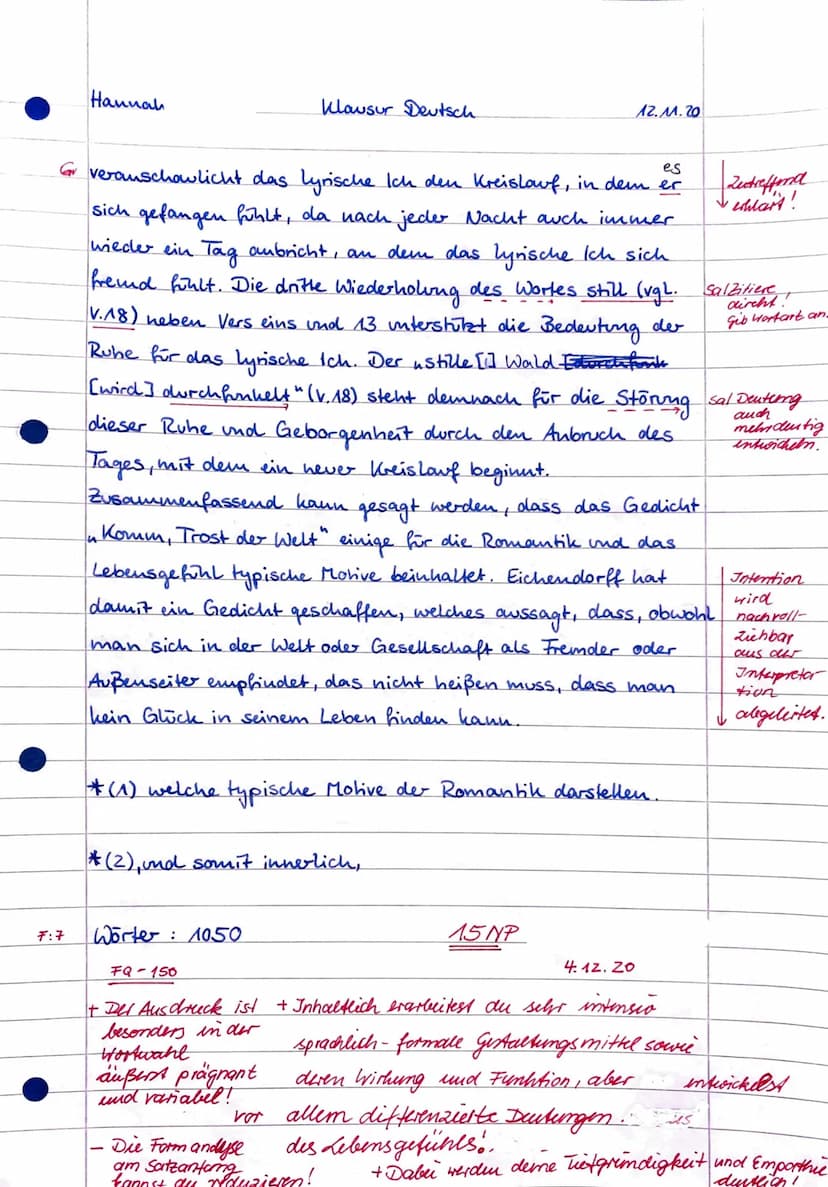 Hannah Klausur Deutsch 12.11.20
es
Gr veranschaulicht das lyrische Ich den Kreislauf, in dem er
Zutreffend
erklärt!
sich gefangen fühlt, da nach jeder Nacht auch immer
wieder ein Tag anbricht, an dem das lyrische Ich sich
fremd fühlt. Die dritte Wiederholung des Wortes still (vgl.
sa/Zitiere
direkt!
Gib Wortart an.
V.18) neben Vers eins und 13 unterstützt die Bedeutung der
Ruhe für das lyrische Ich. Der „stille[] Wald
[wird] durchfunkelt" (V.18) steht demnach für die Störung
sa/ Deutung
auch
mehrdeutig
entwickeln.
dieser Ruhe und Geborgenheit durch den Anbruch des
Tages, mit dem ein neuer Kreislauf beginnt.
Zusammenfassend kann gesagt werden, dass das Gedicht
„Komm, Trost der Welt" einige für die Romantik und das
Lebensgefühl typische Motive beinhaltet. Eichendorff hat
damit ein Gedicht geschaffen, welches aussagt, dass, obwohl
man sich in der Welt oder Gesellschaft als Fremder oder
Außenseiter empfindet, das nicht heißen muss, dass man
kein Glück in seinem Leben finden kann.
Intention
wird
nachvoll-
ziehbar
aus der
Interpreta-
tion
abgeleitet.
*(1) welche typische Motive der Romantik darstellen.
*(2), und somit innerlich,
F:7 Wörter : 1050 15 NP
FQ - 150 4.12.20
+ Der Ausdruck ist
besonders in der
Wortwahl
äußerst prägnant
und variabel!
+ Inhaltlich erarbeitest du sehr intensiv
sprachlich-formale Gestaltungsmittel sowie
deren Wirkung und Funktion, aber entwickelst
vor allem differenzierte Deutungen
des Lebensgefühls!
- Die Formanalyse
am Satzanfang
kannst du reduzieren!
+ Dabei werden deine Tiefgründigkeit und Empathie
deutlich!